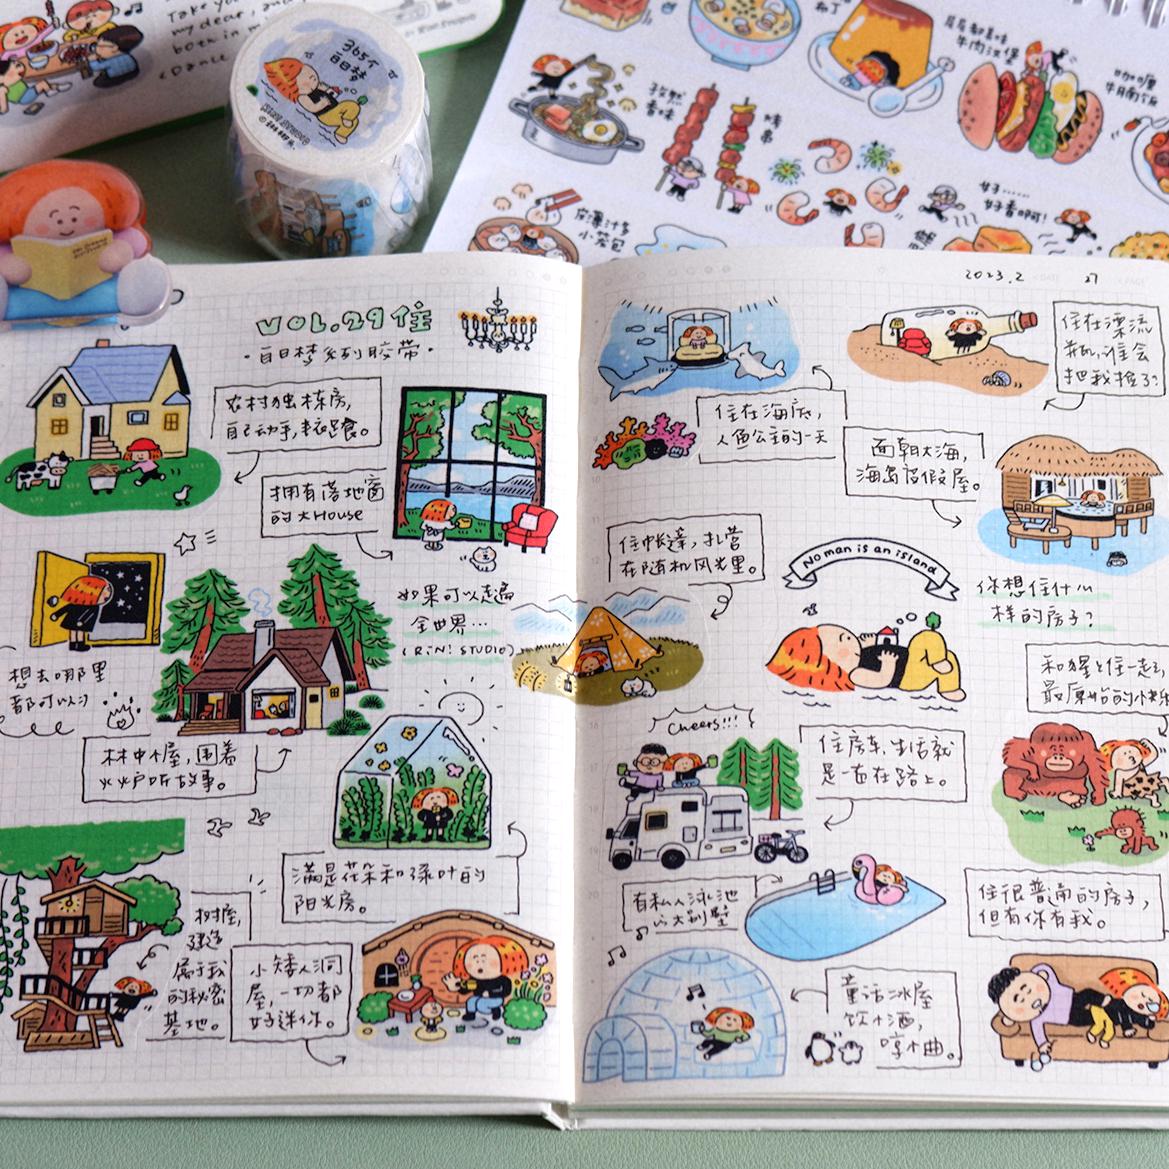 Take you
my dear, and
both in m
(Dance
365个
白日梦
布丁
层层都美味
牛肉汉堡
咖喱
牛腩饭
孜然
香味
烤
串
好……
好香啊！
皮薄汁多
小笼包
2023.2
27
VOL.29 住
·白日梦系列胶带·
农村独栋房，
自己动手，丰衣足食。
拥有落地窗
的大House
如果可以走遍
全世界…
(RiN! STUDIO)
想去哪里
都可以
林中小屋，围着
火炉听故事。
满是花朵和绿叶的
阳光房。
树屋，
建造
属于我
的秘密
基地。
小矮人洞
屋，一切都
好迷你。
住在漂流
瓶，谁会
把我捡了？
住在海底，
人鱼公主的一天
面朝大海，
海岛度假屋。
住帐篷，扎营
在随机风光里。
No man is an island
你想住什么
样的房子？
和猩猩住一起，
最原始的快乐
Cheers!!!
住房车，生活就
是一直在路上。
有私人泳池
の大别墅
住很普通的房子，
但有你有我。
童话冰屋
饮小酒，
哼小曲。